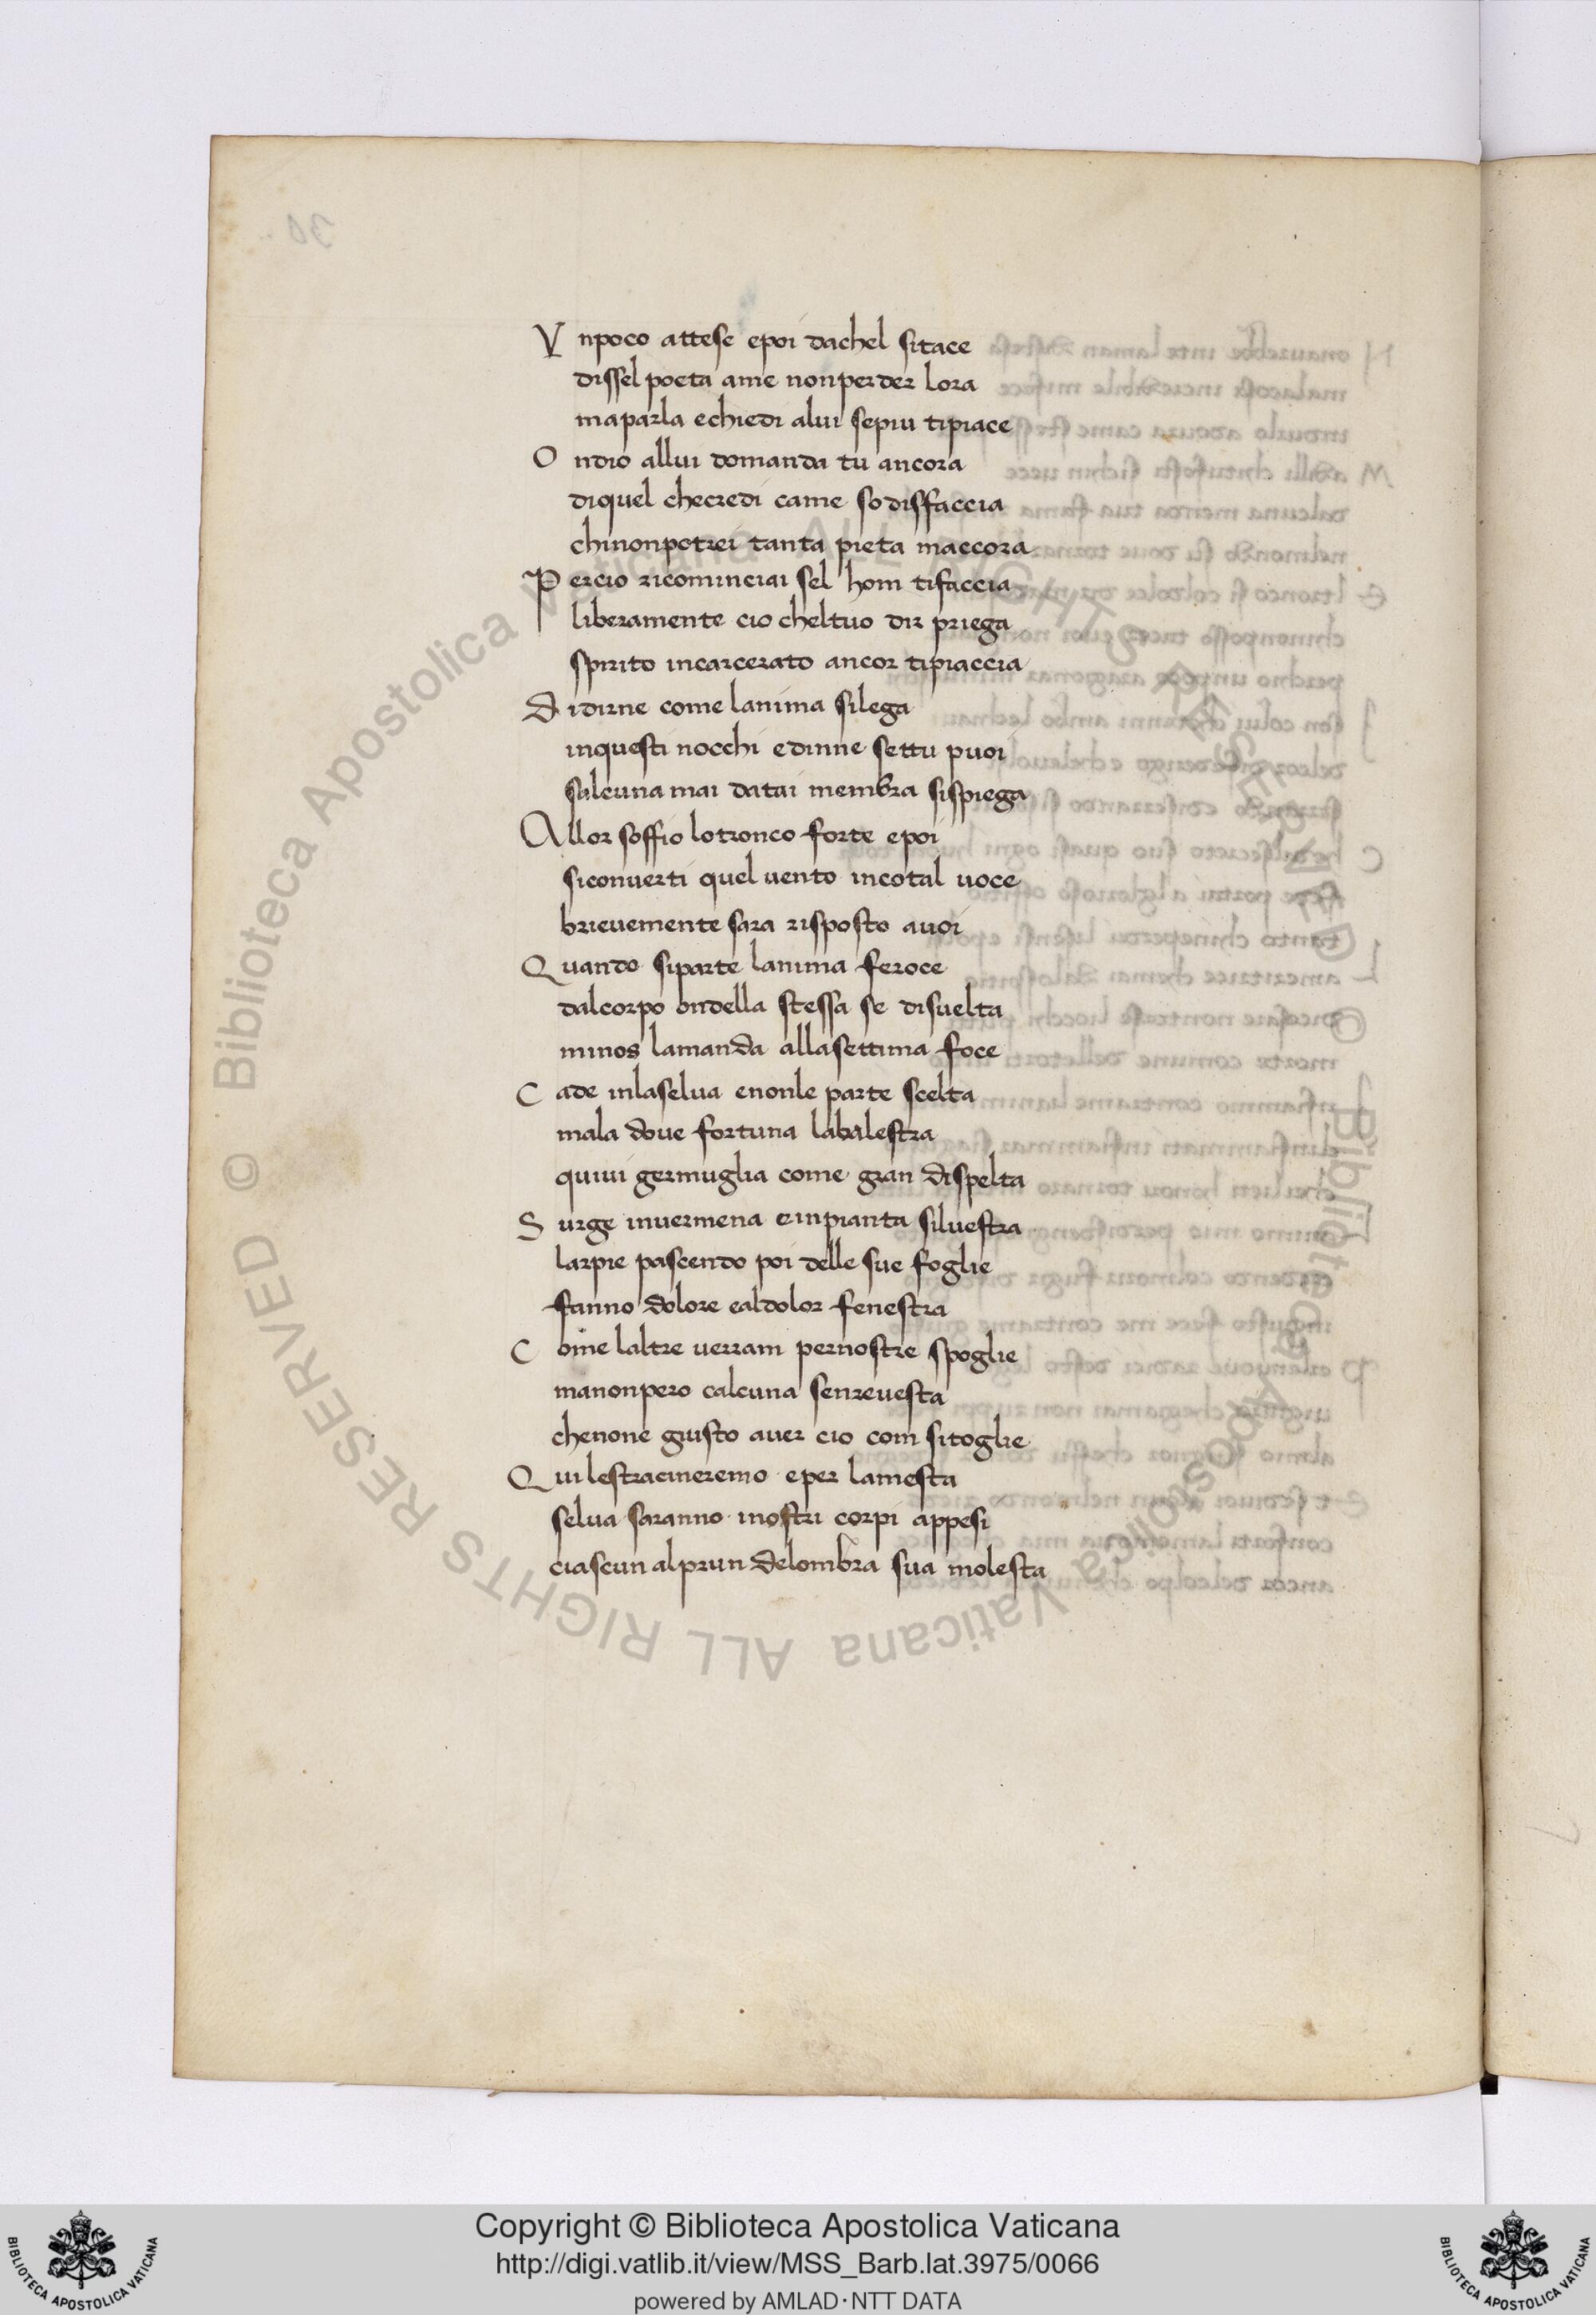 V npoco attese epoi dachel sitace
dissel poeta ame nonperder lora
maparla echiedi alui sepiu tipiace
O ndio allui domanda tu ancora
diquel checredi came sodisfaccia
chinonpotrei tanta pieta maccora
P ercio ricominciai sel hom tifaccia
liberamente cio cheltuo dir priega
spirito incarcerato ancor tipiaccia
D idirne come lanima silega
inquesti nocchi edinne settu puoi
salcuna mai datai membra sispiega
Allor soffio lotronco forte epoi
siconverti quel vento incotal voce
brievemente sara risposto avoi
Q uando siparte lanima feroce
dalcorpo ondella stessa se disvelta
minos lamanda allasettima foce
C ade inlaselva enonle parte scelta
mala dove fortuna labalestra
quivi germuglia come gran dispelta
S urge invermena einpianta silvestra
larpie pascendo poi delle sue foglie
fanno dolore ealdolor fenestra
C ome laltre verram pernostre spoglie
manonpero calcuna senrevesta
chenone giusto aver cio com sitoglie
Q ui lestracineremo eper lamesta
selva saranno inostri corpi appesi
ciascun alprun delombra sua molesta
© Biblioteca Apostolica Vaticana ALL RIGHTS RESERVED
© Biblioteca Apostolica Vaticana ALL RIGHTS RESERVED
Copyright © Biblioteca Apostolica Vaticana
http://digi.vatlib.it/view/MSS_Barb.lat.3975/0066
powered by AMLAD·NTT DATA
BIBLIOTECA APOSTOLICA VATICANA
BIBLIOTECA APOSTOLICA VATICANA